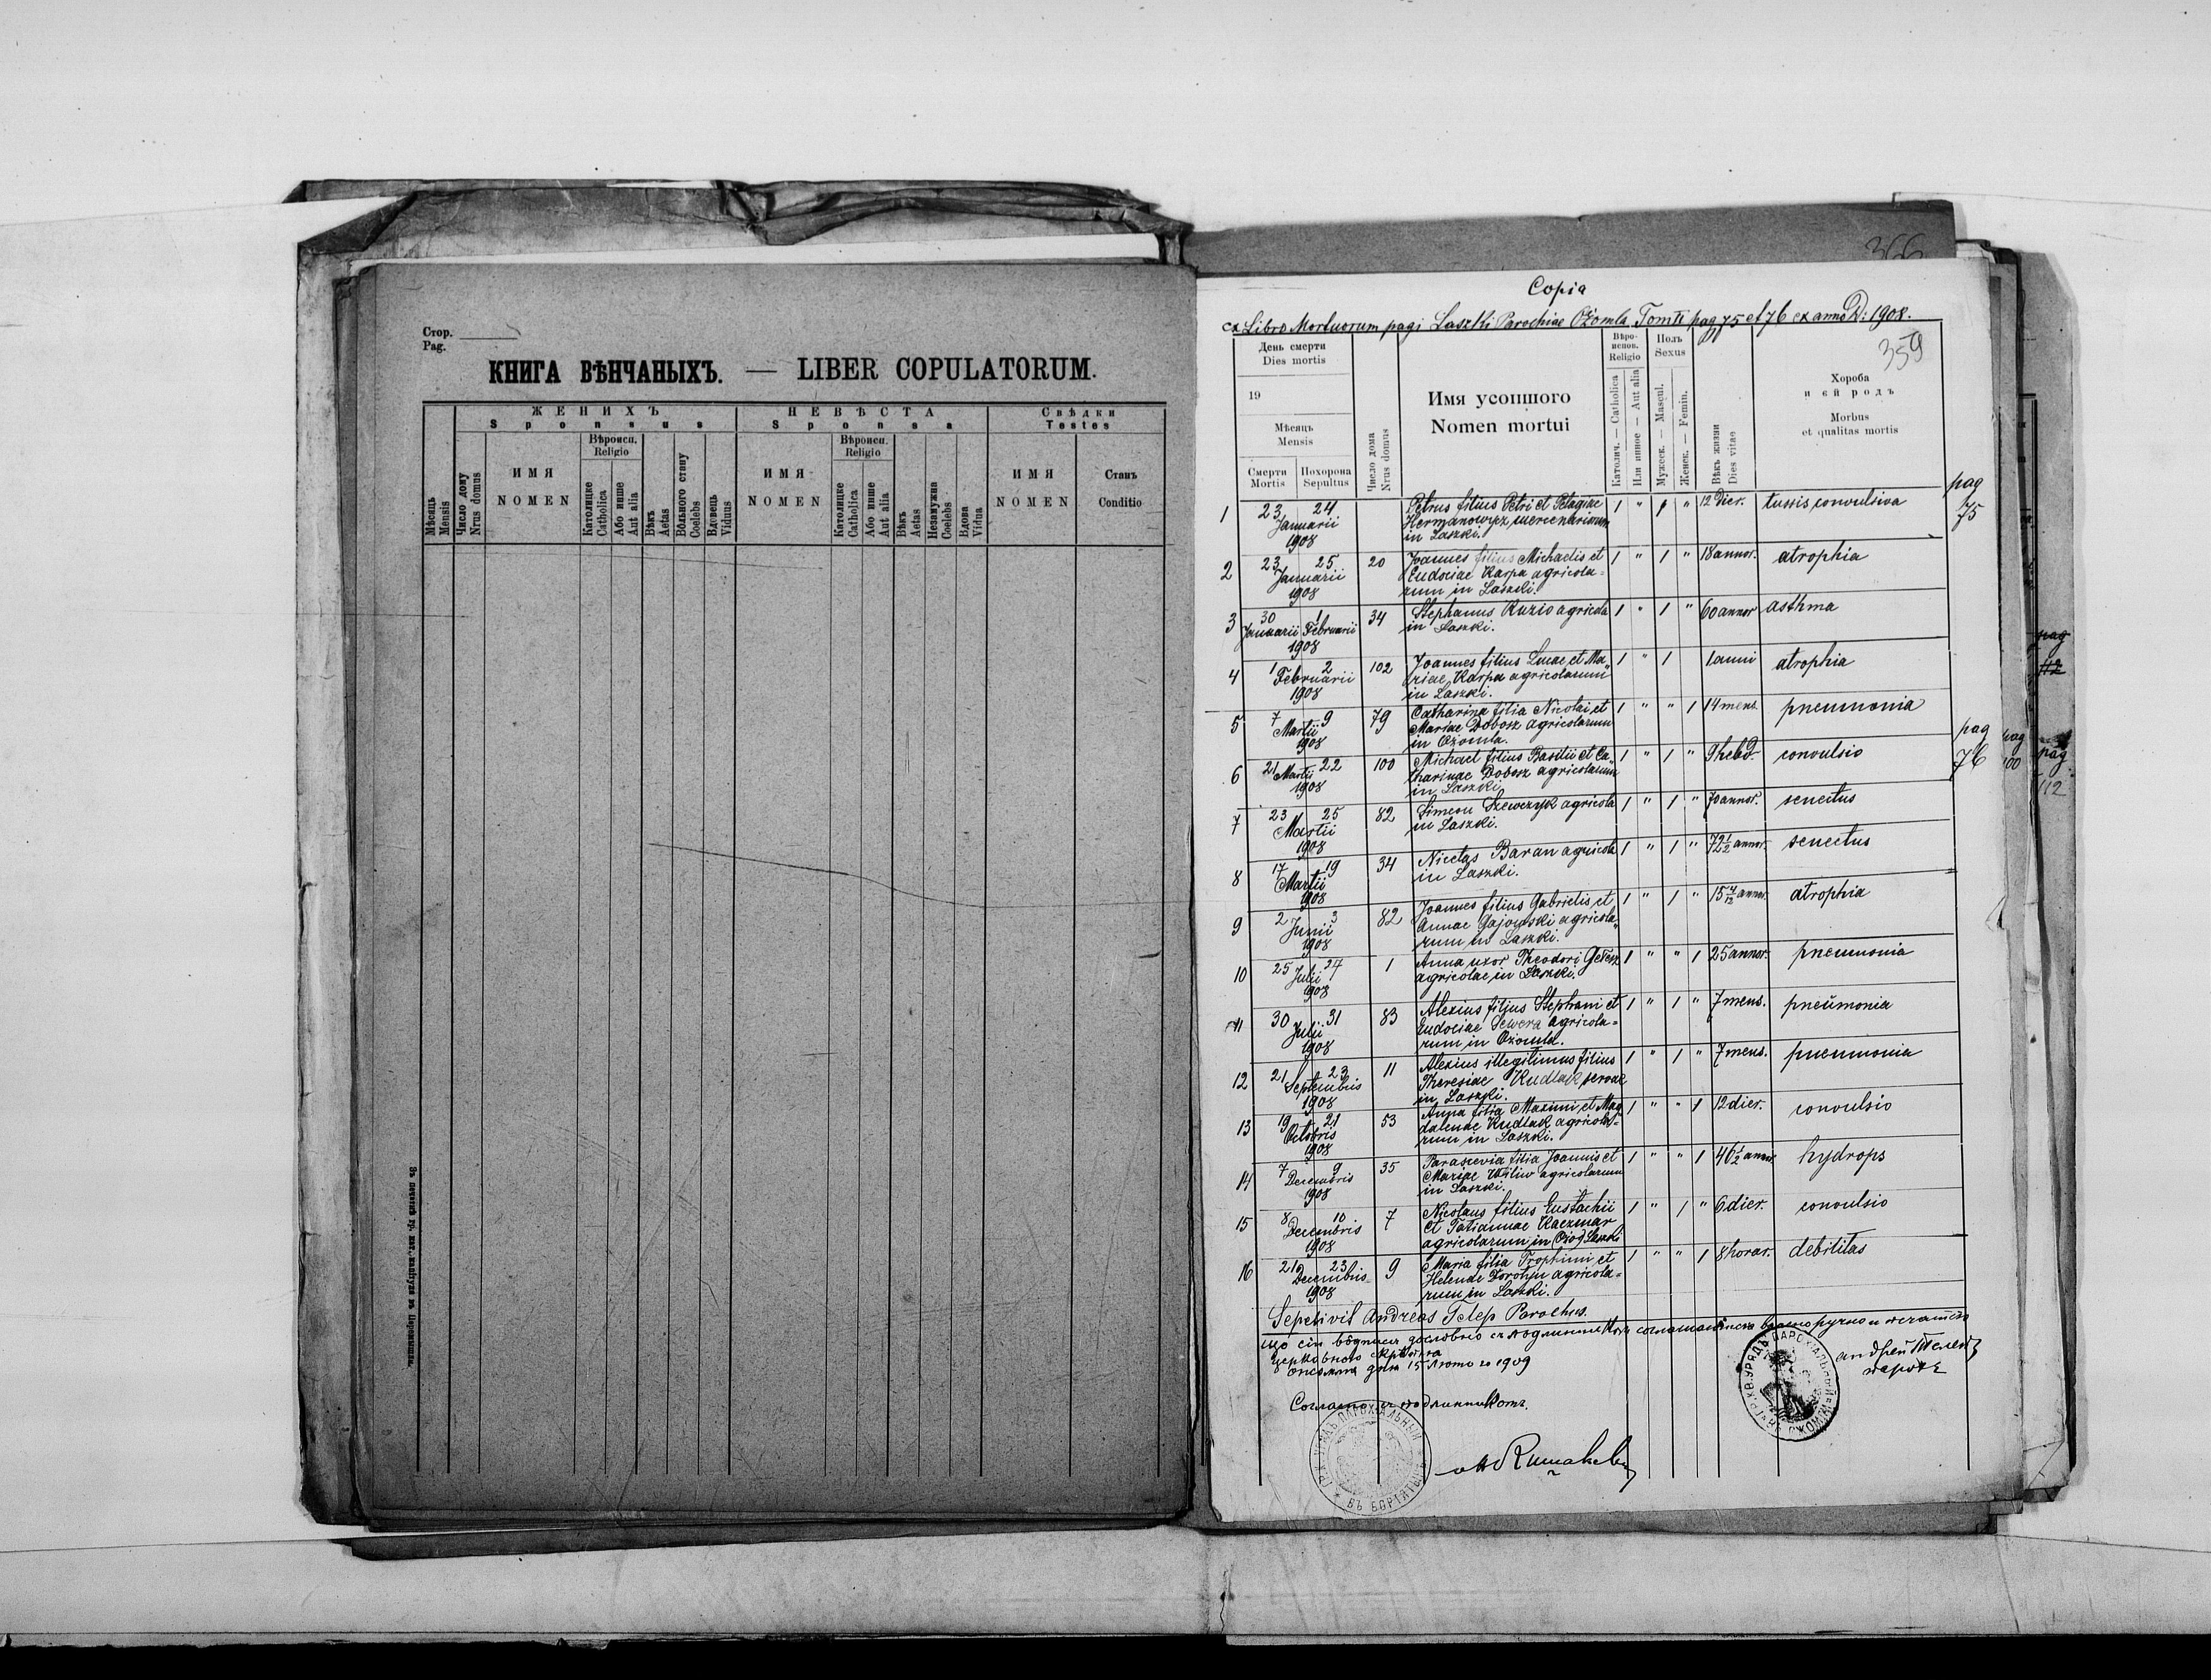 Стор.
Pag.
КНИГА ВѢНЧАНЫХЪ. — LIBER COPULATORUM.
Мѣсяць
Mensis
Число дому
Nrus domus
ЖЕНИХЪ
Sponsus
ИМЯ
NOMEN
Вѣроисп.
Religio
Католицке
Catholica
Або инше
Aut alia
Вѣкъ
Aetas
Вольного стану
Coelebs
Вдовець
Viduus
НЕВѢСТА
Sponsa
ИМЯ
NOMEN
Вѣроисп.
Religio
Католицке
Catholica
Або инше
Aut alia
Вѣкъ
Aetas
Незамужна
Coelebs
Вдова
Vidua
Свѣдки
Testes
ИМЯ
NOMEN
Станъ
Conditio
366
Copia
ex Libro Mortuorum pagi Laszki Parochiae Ożomla Tom II pag 75 et 76 ex anno D: 1908.
359
День смерти
Dies mortis
19
Мѣсяць
Mensis
Смерти
Mortis
Похорона
Sepultus
Число дома
Nrus domus
Имя усопшого
Nomen mortui
Вѣро-
испов.
Religio
Католич. — Catholica
Или инное — Aut alia
Полъ
Sexus
Мужеск. — Mascul.
Женск. — Femin.
Вѣкъ жизни
Dies vitae
Хороба
и єй родъ
Morbus
et qualitas mortis
pag
75
1 23 24 Januarii 1908 Petrus filius Petri et Pelagiae
Hermanowicz mercenariorum
in Laszki. 1 " 1 " 12 dier. tussis convulsiva
2 23 25 Januarii 1908 20 Joannes filius Michaelis et
Eudociae Karpa agricola=
rum in Laszki. 1 " 1 " 18 annor. atrophia
3 30 Januarii 1 Februarii 1908 34 Stephanus Kuzio agricola
in Laszki. 1 " 1 " 60 annor asthma
4 1 2 Februarii 1908 102 Joannes filius Lucae et Ma„
riae Karpa agricolarum
in Laszki. 1 " 1 1 anni atrophia
5 7 9 Martii 1908 79 Catharina filia Nicolai et
Mariae Dobosz agricolarum
in Ożomla. 1 " " 1 14 mens. pneumonia
pag
76
6 21 22 Martii 1908 100 Michael filius Basilii et Ca„
tharinae Dobosz agricolarum
in Laszki 1 " 1 " 9 hebd. convulsio
7 23 25 Martii 1908 82 Simeon Szewczyk agricola
in Laszki. 1 " 1 " 70 annor. senectus
8 17 19 Martii 1908 34 Nicetas Baran agricola
in Laszki. 1 " 1 " 72 1/2 annor. senectus
9 2 3 Junii 1908 82 Joannes filius Gabrielis et
Annae Gajowski agricola„
rum in Laszki. 1 " 1 " 15 4/12 annor. atrophia
10 25 27 Julii 1908 1 Anna uxor Theodori
agricolae in Laszki. 1 " " 1 25 annor. pneumonia
11 30 31 Julii 1908 83 Alexius filius Stephani et
Eudociae Sewera agricola=
rum in Ożomla. 1 " 1 " 7 mens. pneumonia
12 21 23 Septembris 1908 11 Alexius illegitimus filius
Theresiae Kudlak servae
in Laszki. 1 " 1 " 7 mens. pneumonia
13 19 21 Octobris 1908 53 Anna filia Maximi et Mag
dalenae Kudlak agricola=
rum in Laszki. 1 " " 1 12 dier. convulsio
14 7 9 Decembris 1908 35 Parascevia filia Joannis et
Mariae agricolarum
in Laszki. 1 " " 1 46 1/2 annor. hydrops
15 8 10 Decembris 1908 7 Nicolaus filius Eustachii
et Tatiannae Kaczmar
agricolarum in Laszki 1 " 1 " 6 dier. convulsio
16 21 23 Decembris 1908 9 Maria filia Trophimi et
Helenae Dorotiju agricola=
rum in Laszki. 1 " " 1 8 horar. debilitas
Sepelivit Andreas Telep Parochus.
що сiи водписи дословно съ подлинникомъ
церковного
дня 15 Лютого 1909
Андрей Телеп
парохъ
Согласно съ подлинникомъ.
ГР. К. УРЯДЪ ПАРОХIАЛЬНЫЙ ВЪ БОРТЯТИНѢ
pag
100
pag
112
pag
112
За печатнѣ гр. кат. капитулы въ Перемышли.